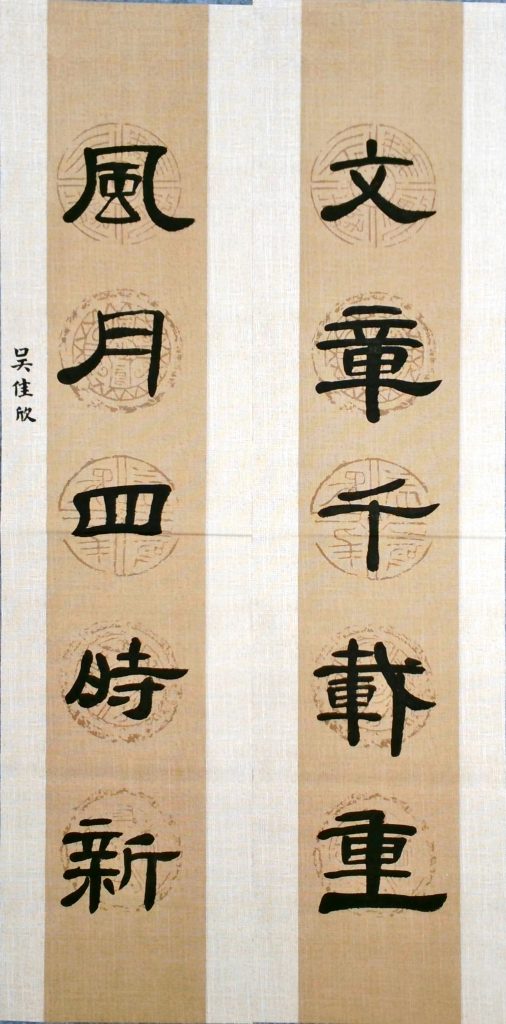 文章千載重
風月四時新
吳佳欣